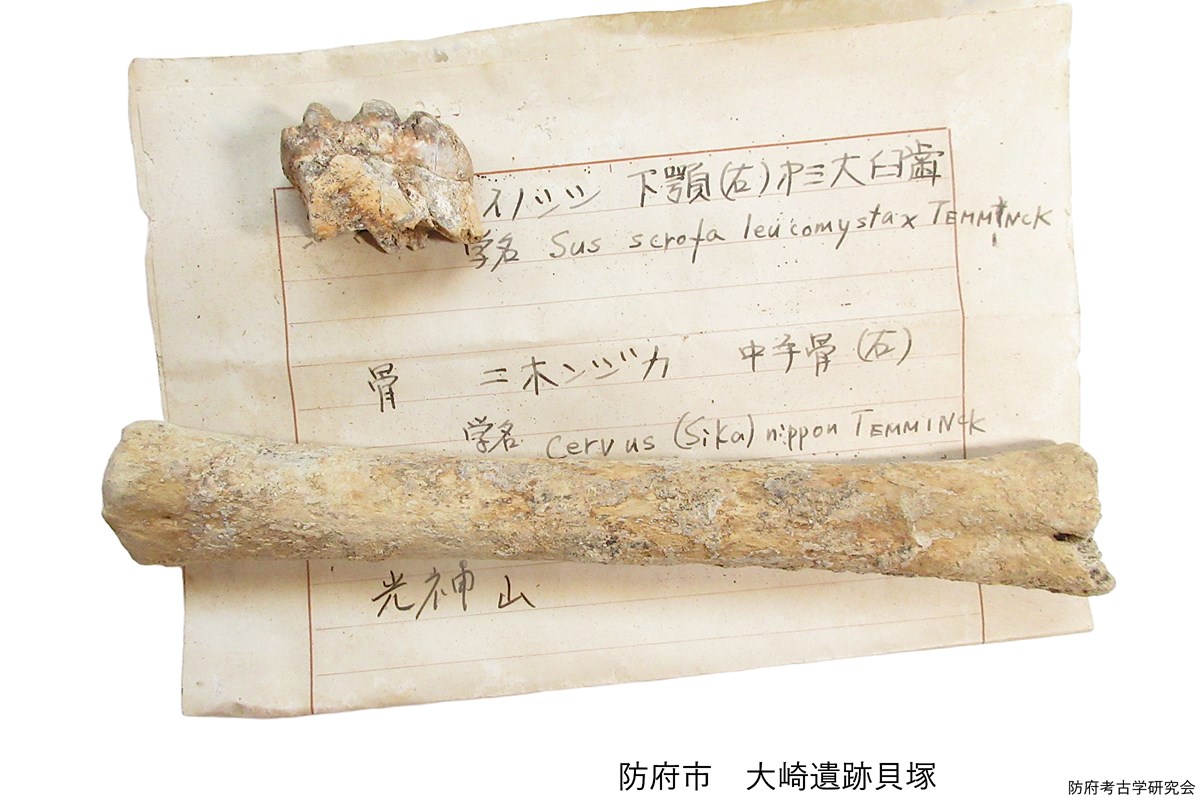 イノシシ 下顎(右)オ三大臼歯
学名 Sus scrofa leucomystax TEMMINCK
骨 ニホンジカ 中手骨(右)
学名 Cervus (Sika) nippon TEMMINCK
光神山
防府市 大崎遺跡貝塚
防府考古学研究会